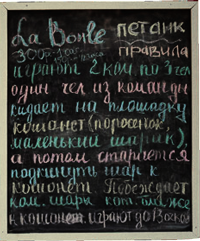 La Boule петанк
300р - 1 час правила
играют 2 ком по 3 чел
один чел из команды
кидает на площадку
кошонет (поросенок,
маленький шарик),
а потом старается
подкинуть шар к
кошонет. Побеждает
ком. шары кот. ближе
к кошонет. играют до 13 очков